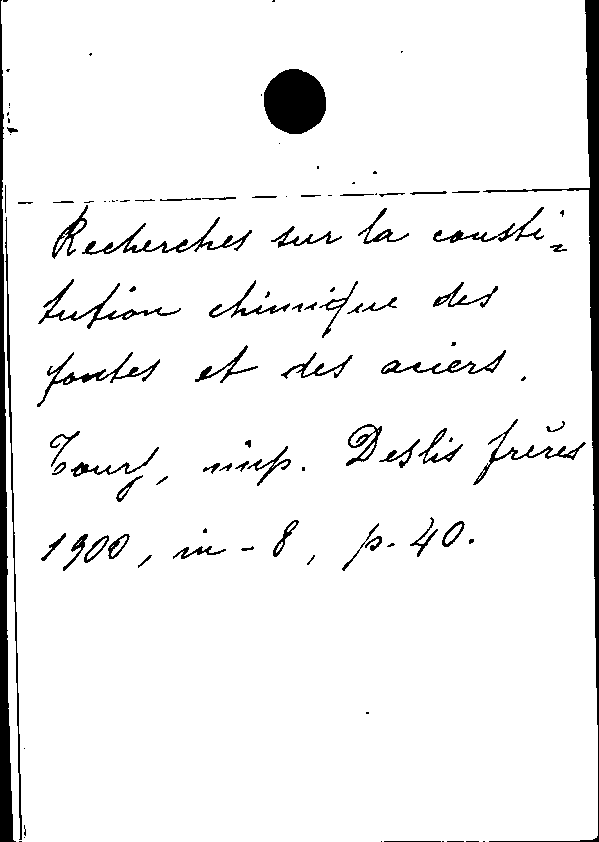 Recherches sur la consti=
tution chimique des
fontes et des aciers.
Tours, imp. Deslis frères
1900, in-8, p. 40.